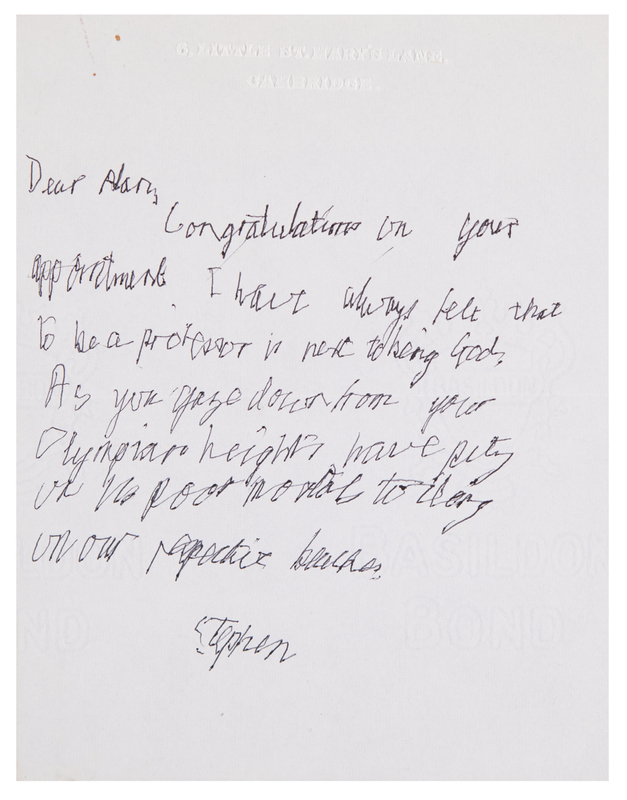 6, LITTLE ST. MARY'S LANE,
CAMBRIDGE.
Dear Alan,
Congratulations on your
appointment I have always felt that
to be a professor is next to being God.
As you gaze down from your
Olympian heights have pity
on us poor mortals toiling
on our respective
Stephen
BASILDON
BOND
ND